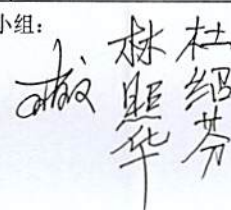 小组：
林照华
杜绍芬